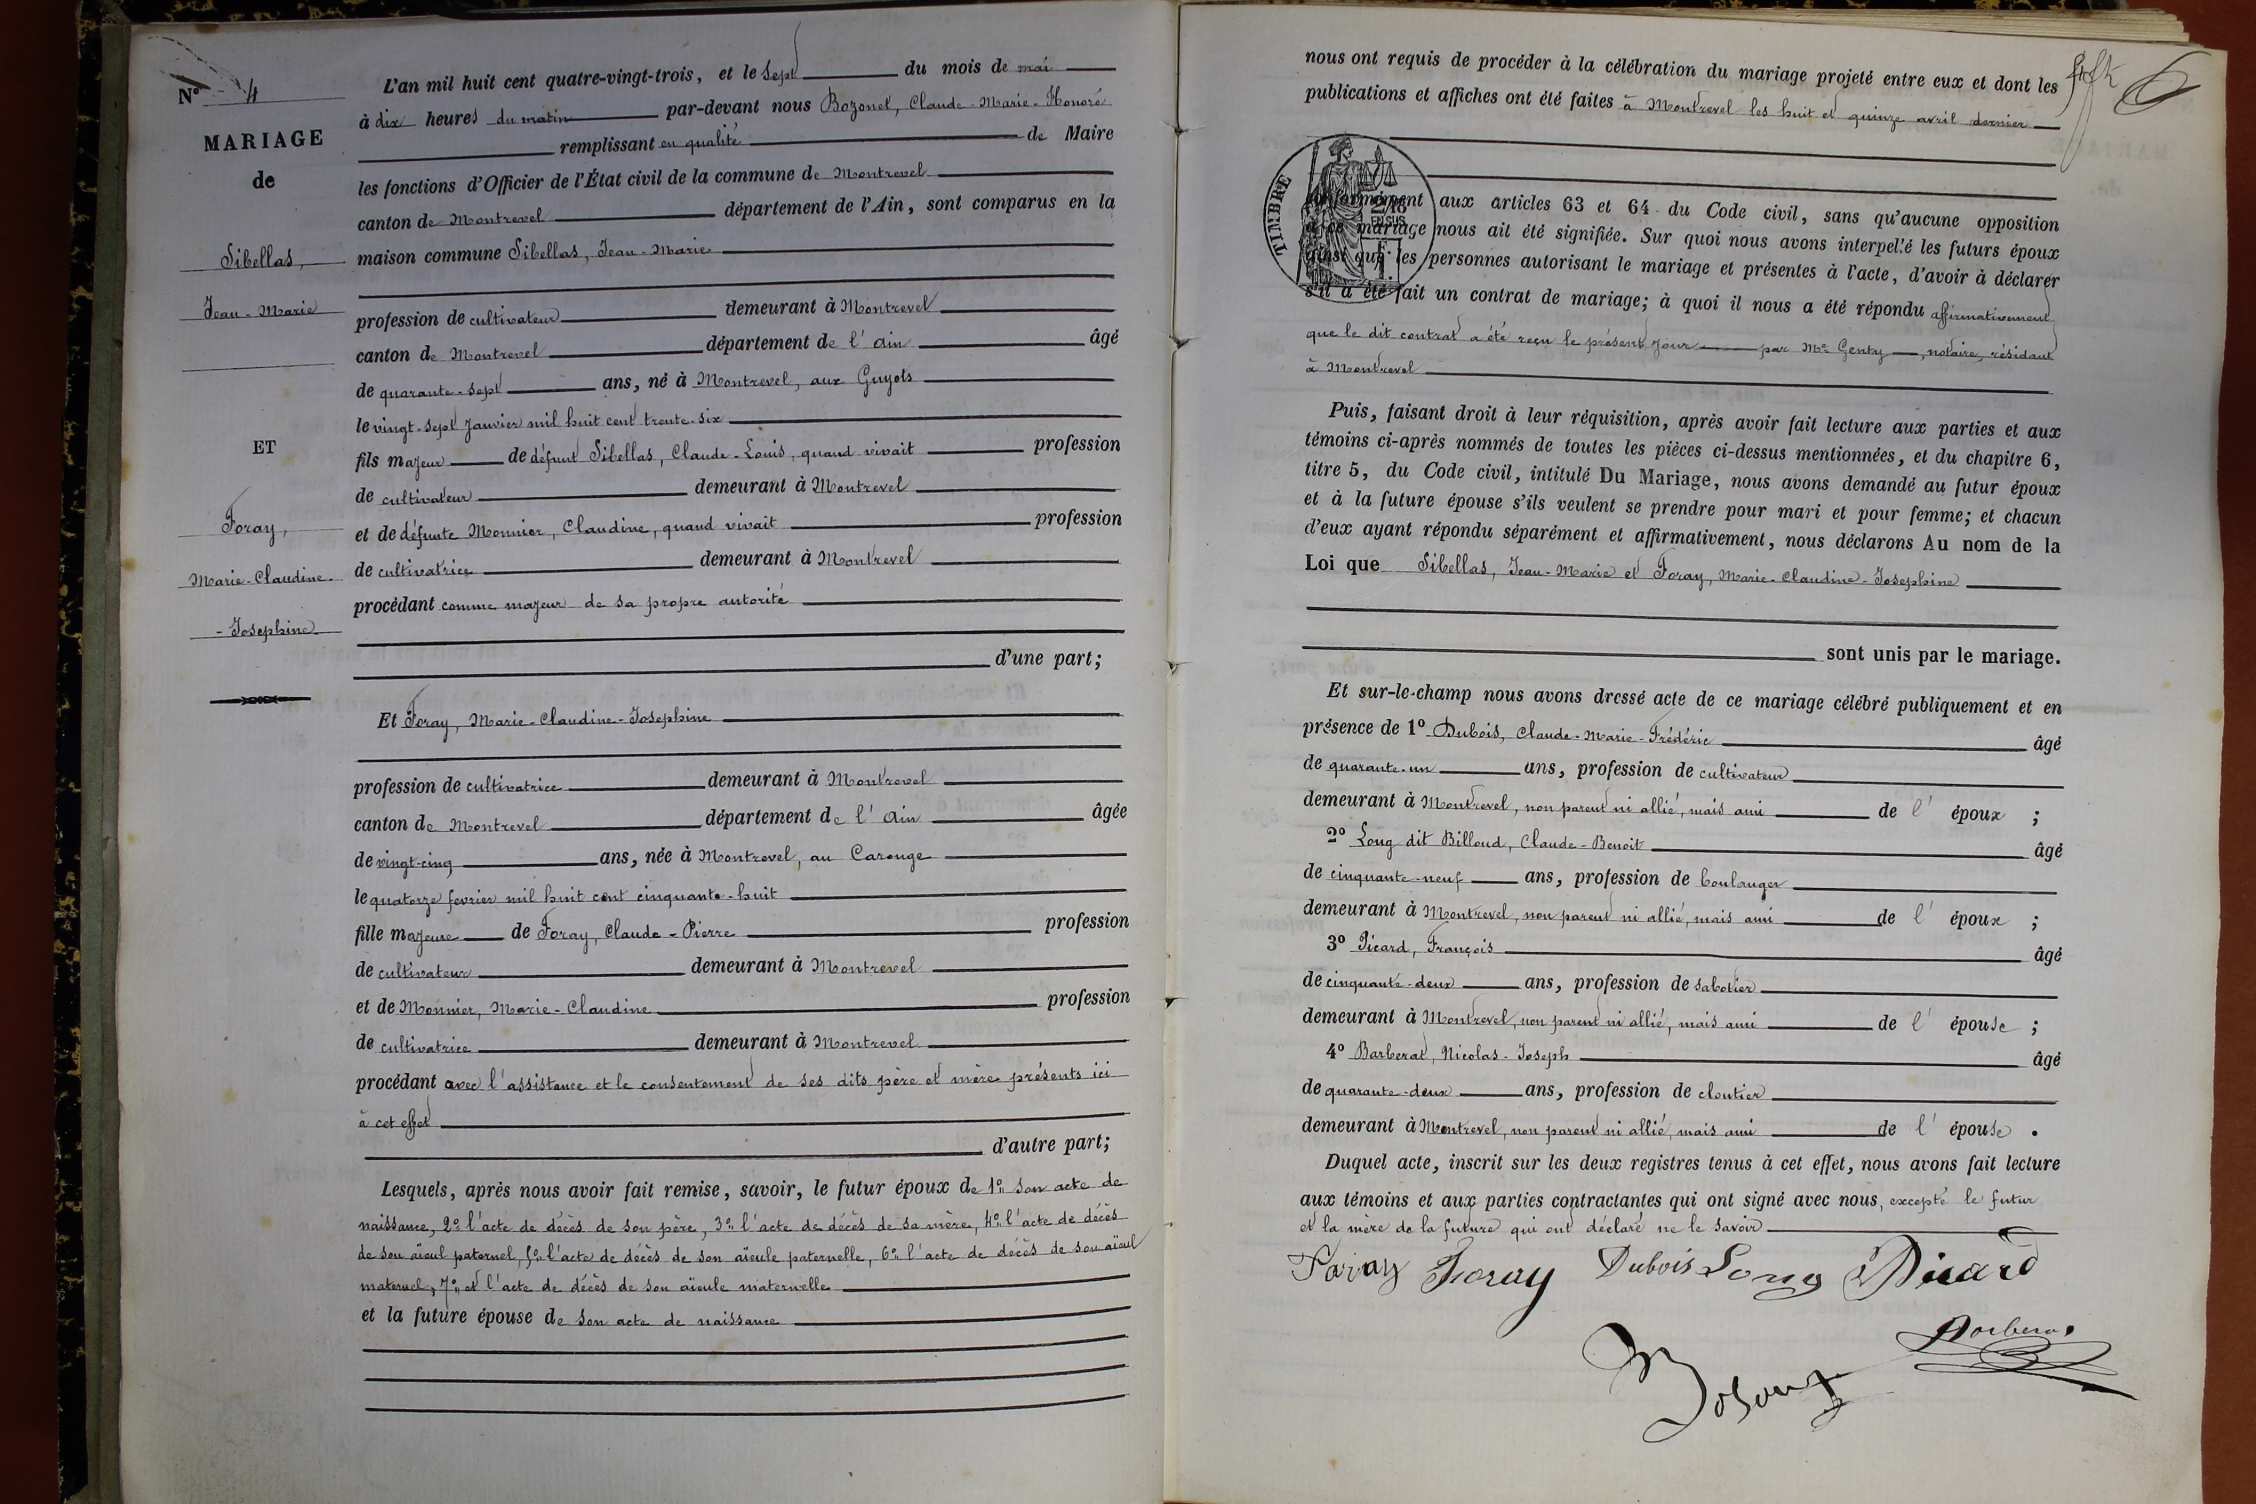 N° 4
MARIAGE
de
Sibellas,
Jean-Marie
ET
Foray,
Marie-Claudine-
-Josephine
L'an mil huit cent quatre-vingt-trois, et le sept du mois de mai
à dix heures du matin par-devant nous Bozonet, Claude-Marie-Honoré
remplissant en qualité de Maire
les fonctions d'Officier de l'État civil de la commune de Montrevel
canton de Montrevel département de l'Ain, sont comparus en la
maison commune Sibellas, Jean-Marie
profession de cultivateur demeurant à Montrevel
canton de Montrevel département de l'ain âgé
de quarante-sept ans, né à Montrevel, aux Guyots
le vingt-sept Janvier mil huit cent trente-six
fils majeur de défunt Sibellas, Claude-Louis, quand vivait profession
de cultivateur demeurant à Montrevel
et de défunte Monnier, Claudine, quand vivait profession
de cultivatrice demeurant à Montrevel
procédant comme majeur de sa propre autorité
d'une part;
Et Foray, Marie-Claudine-Josephine
profession de cultivatrice demeurant à Montrevel
canton de Montrevel département de l'ain âgée
de vingt-cinq ans, née à Montrevel, au Carouge
le quatorze fevrier mil huit cent cinquante-huit
fille majeure de Foray, Claude-Pierre profession
de cultivateur demeurant à Montrevel
et de Monnier, Marie-Claudine profession
de cultivatrice demeurant à Montrevel
procédant avec l'assistance et le consentement de ses dits père et mère présents ici
à cet effet
d'autre part;
Lesquels, après nous avoir fait remise, savoir, le futur époux de 1° son acte de
naissance, 2° l'acte de décès de son père, 3° l'acte de décès de sa mère, 4° l'acte de décès
de son aïeul paternel, 5° l'acte de décès de son aïeule paternelle, 6° l'acte de décès de son aïeul
maternel, 7° et l'acte de décès de son aïeule maternelle
et la future épouse de son acte de naissance
nous ont requis de procéder à la célébration du mariage projeté entre eux et dont les
publications et affiches ont été faites à Montrevel les huit et quinze avril dernier
6
TIMBRE
conformément aux articles 63 et 64 du Code civil, sans qu'aucune opposition
à ce mariage nous ait été signifiée. Sur quoi nous avons interpellé les futurs époux
ainsi que les personnes autorisant le mariage et présentes à l'acte, d'avoir à déclarer
s'il a été fait un contrat de mariage; à quoi il nous a été répondu affirmativement
que le dit contrat a été reçu le présent jour par Me Genty, notaire, résidant
à Montrevel
Puis, faisant droit à leur réquisition, après avoir fait lecture aux parties et aux
témoins ci-après nommés de toutes les pièces ci-dessus mentionnées, et du chapitre 6,
titre 5, du Code civil, intitulé Du Mariage, nous avons demandé au futur époux
et à la future épouse s'ils veulent se prendre pour mari et pour femme; et chacun
d'eux ayant répondu séparément et affirmativement, nous déclarons Au nom de la
Loi que Sibellas, Jean-Marie et Foray, Marie-Claudine-Josephine
sont unis par le mariage.
Et sur-le-champ nous avons dressé acte de ce mariage célébré publiquement et en
présence de 1° Dubois, Claude-Marie-Frédéric âgé
de quarante-un ans, profession de cultivateur
demeurant à Montrevel, non parent ni allié, mais ami de l'époux ;
2° Long dit Billoud, Claude-Benoit âgé
de cinquante-neuf ans, profession de boulanger
demeurant à Montrevel, non parent ni allié, mais ami de l'époux ;
3° Picard, François âgé
de cinquante-deux ans, profession de sabotier
demeurant à Montrevel, non parent ni allié, mais ami de l'épouse ;
4° Barberat, Nicolas-Joseph âgé
de quarante-deux ans, profession de cloutier
demeurant à Montrevel, non parent ni allié, mais ami de l'épouse .
Duquel acte, inscrit sur les deux registres tenus à cet effet, nous avons fait lecture
aux témoins et aux parties contractantes qui ont signé avec nous, excepté le futur
et la mère de la future qui ont déclaré ne le savoir
Foray Foray Dubois Long Picard
Barberat
Bozonet